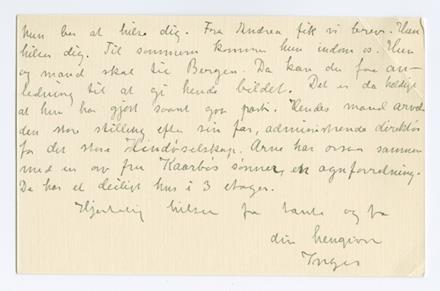 hun bes at hilse dig. Fra Andrea fik vi brev. Hun
hilser dig. Til sommern kommer hun indom os. Hun
og mand skal til Bergen. Da kan du faa an-
ledning til at gi hende bildet. Det er da heldig
at hun har gjort saant godt parti. Hendes mand arved
den store stilling efter sin far, administrerende direktør
for det store Hindøselskap. Arne har ossaa sammen
med en av fru Kaarbøs sønner, en agnforredning.
De har et deiligt hus i 3 etager.
Hjertelig hilsen fra tante og fra
din hengivne
Inger